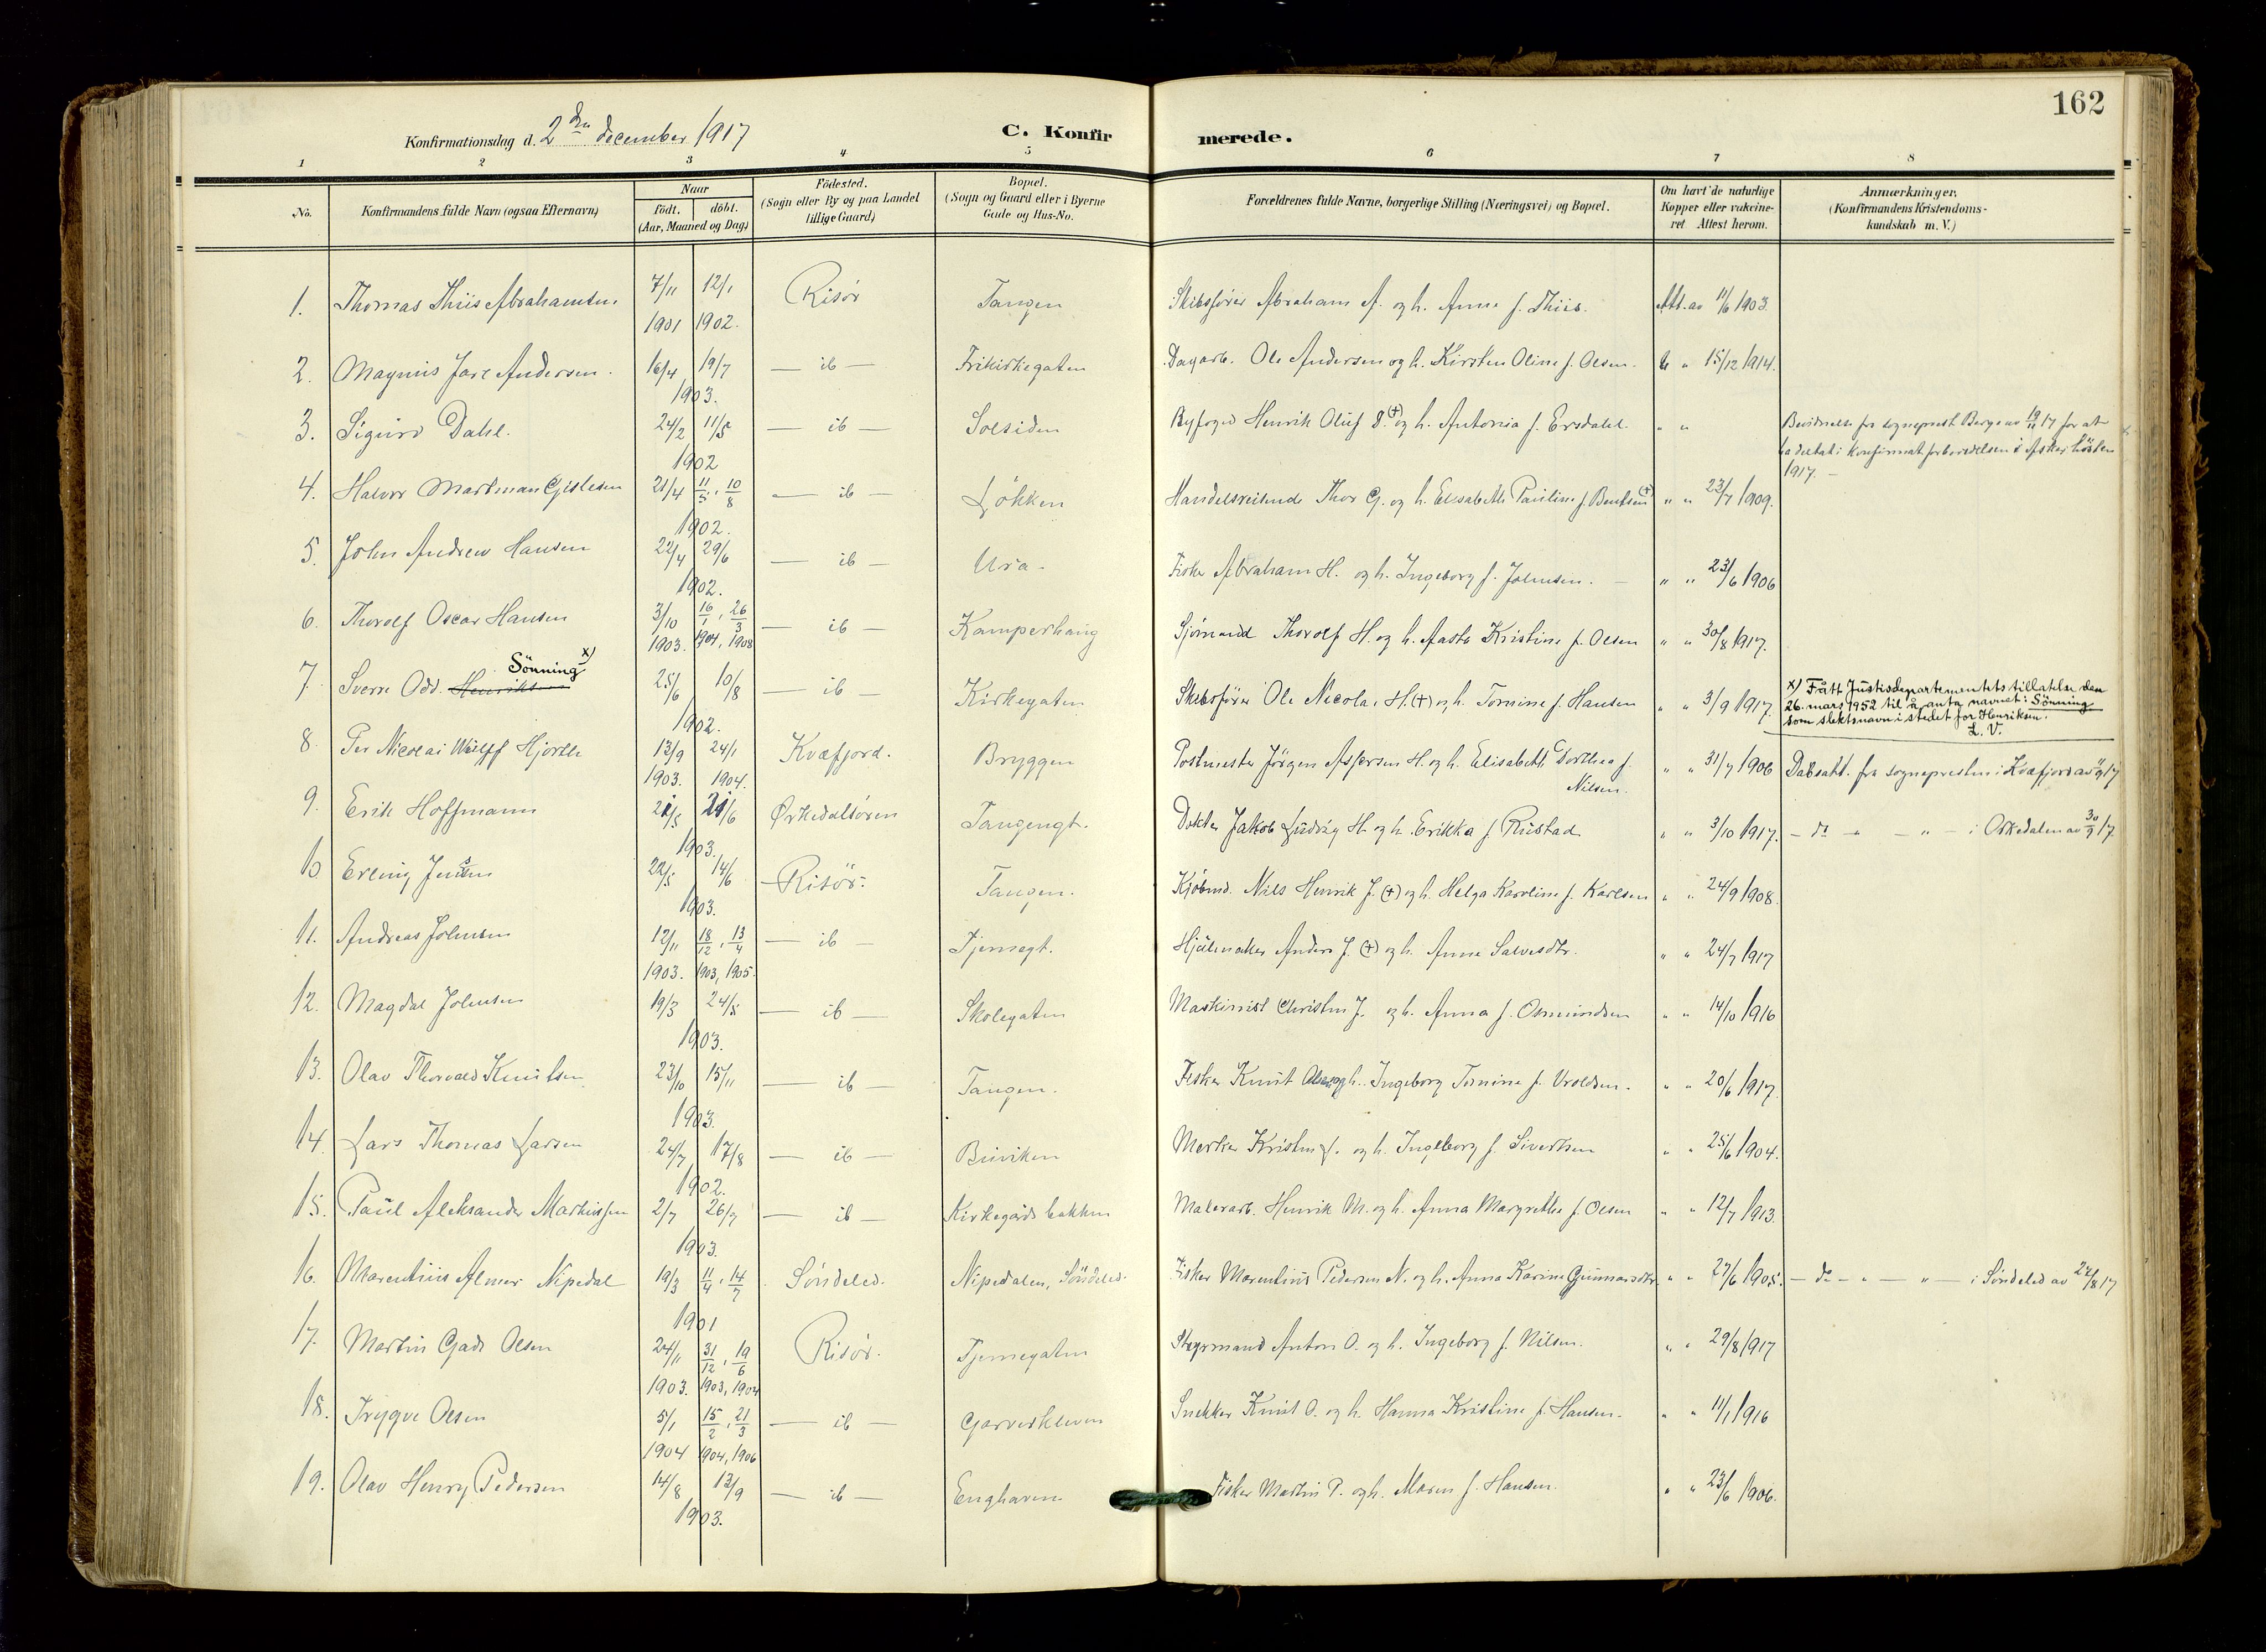 162
Konfirmationsdag d. 2den december 1917
C. Konfirmerede.
1 2 3 4 5 6 7 8
No. Konfirmandens fulde Navn (ogsaa Efternavn) Naar født. døbt. (Aar, Maaned og Dag) Fødested. (Sogn eller By og paa Landet tillige Gaard) Bopæl. (Sogn og Gaard eller i Byerne Gade og Hus-No. Forældrenes fulde Navne, borgerlige Stilling (Næringsvei) og Bopæl. Om havt de naturlige Kopper eller vakcineret Attest herom. Anmærkninger. (Konfirmandens Kristendomskundskab m. V.)
1. Thomas Thiis Abrahamsen 7/11 1901 12/1 1902. Risør Tangen Skibsfører Abraham A. og h. Anna f. Thiis. Att. av 11/6 1903.
2. Magnus Jarl Andersen. 16/4 19/7 1903. — ib — Frikirkegaten Dagarb. Ole Andersen og h. Kirsten Oline f. Olsen. " 15/12 1914.
3. Sigurd Dahl. 24/2 11/5 1902 — ib — Solsiden Byfoged Henrik Oluf D. (+) og h. Antonia f. Ersdahl. " " Bevidnelse fra sogneprest Berge av 19/11 17 for at ha deltat i konfirmatforberedelsen i Asker hösten 1917. —
4. Halvor Martman Gislesen 21/4 11/5, 10/8 1902. — ib — Løkken Handelsreisende Thor G. og h. Elisabeth Pauline f. Bentsen (+) " " 23/7 1909.
5. John Andrew Hansen 22/4 29/6 1902. — ib — Ura. Fisker Abraham H. og h. Ingeborg f. Johnsen. — " " 23/6 1906
6. Thorolf Oscar Hansen 3/10 1903. 16/1, 26/3 1904, 1908 — ib — Kamperhaug Sjømand Thorolf H. og h. Aasta Kristine f. Olsen " " 30/8 1917.
7. Sverre Odd. Henriksen Sönning x) 25/6 10/8 1902. — ib — Kirkegaten Skibsfører Ole Nicolai H. (+) og h. Tomine f. Hansen " " 3/9 1917. x) Fått Justisdepartementets tillatelse den 26. mars 1952 til å anta navnet: Sönning som slektsnavn i stedet for Henriksen. L. V.
8. Per Nicolai Wulff Hjorth 13/9 1903. 24/1 1904. Kvæfjord. Bryggen Postmester Jörgen Asfersen H. og h. Elisabeth Dorthea f. Nilsen. " " 31/7 1906 Dåbsatt. fra sognepresten i Kvæfjord av
9. Erik Hoffmann 21/5 21/6 1903. Ørkedalsøren Tangengt. Doktor Jakob Ludvig H. og h. Erikka f. Rustad " " 3/10 1917. — do — " — i Orkedalen av 30/9 17
10 Erling Jensen 22/5 14/6 1903. — Risør. Tangen. Kjøbmd. Nils Henrik J. (+) og h. Helga Karoline f. Karlsen " " 24/9 1908.
11. Andreas Johnsen 12/11 1903. 18/12, 13/4 1903, 1905. — ib — Tjennegt. Hjulmaker Anders J. (+) og h. Anne Salvesdtr. " " 24/7 1917
12. Magdal Johnsen 19/3 24/5 1903. — ib — Skolegaten Maskinist Christen J. og h. Anna f. Osmundsen " " 14/10 1916
13. Olav Thorvald Knutsen 23/10 15/11 1903. — ib — Tangen. Fisker Knut Olsen og h. Ingeborg Tomine f. Vroldsen. " " 20/6 1917.
14. Lars Thomas Larsen 24/7 17/8 1902. — ib — Buviken Merker Kristen L. og h. Ingeborg f. Sivertsen " " 25/6 1904.
15. Paul Aleksander Markussen 2/7 26/7 1903. — ib — Kirkegårdsbakken Malerarb. Henrik M. og h. Anna Margrethe f. Olsen " " 12/7 1913.
16. Marentius Almer Nipedal 19/3 11/4, 14/7 1901 Søndeled. Nipedalen, Søndeled. Fisker Marentius Pedersen N. og h. Anna Karine Gunnarsdtr. " " 27/6 1905. — do — " — i Søndeled av 24/8 17
17. Martin Gade Olsen 24/11 1903. 31/12, 19/6 1903, 1904 Risør. Tjennegaten Styrmand Anton O. og h. Ingeborg f. Nilsen. " " 29/8 1917
18. Trygve Olsen 5/1 1904 15/2, 21/3 1904, 1906 — ib — Garverkleven Snekker Knut O. og h. Hanna Kristine f. Hansen. " " 11/1 1916
19. Olav Henry Pedersen 14/8 13/9 1903. — ib — Enghaven Fisker Martin P. og h. Maren f. Hansen. " " 23/6 1906.